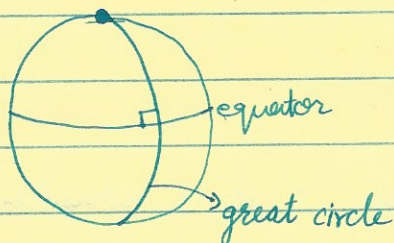 equator
great circle